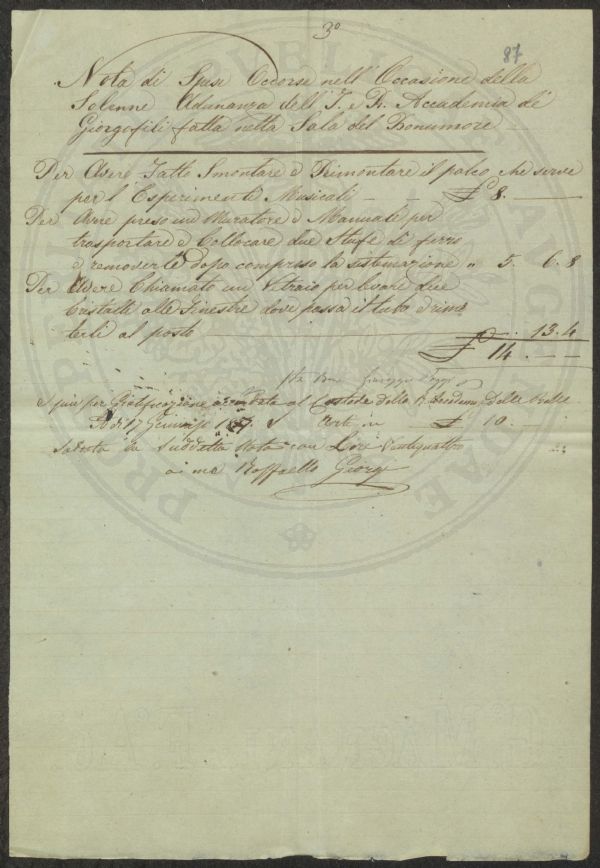 3º
87
Nota di Spese Occorse nell'Occasione della
Solenne Adunanza dell'I. e R. Accademia de'
Giorgofili fatta nella Sala del Buonumore
Per Avere Fatto Smontare e Rimontare il palco che serve
per l'Esperimenti Musicali £ 8. —
Per Avere preso un Muratore e Manuale per
trasportare e Collocare due Stufe di ferro
e removerle dopo compreso la " 5. 6. 8
Per Avere Chiamato un Vetraio per levare due
Cristalli alle Finestre dove passa il tubo e rime
terli al posto — 13. 4
£ 14. — —
E più per Gratificazione al Custode della R. Accademia delle Belle
Adì 17 Gennajo Arti in £ 10. —
Saldata la Suddetta Nota con Lire Ventiquattro
a me Raffaello Giorgi